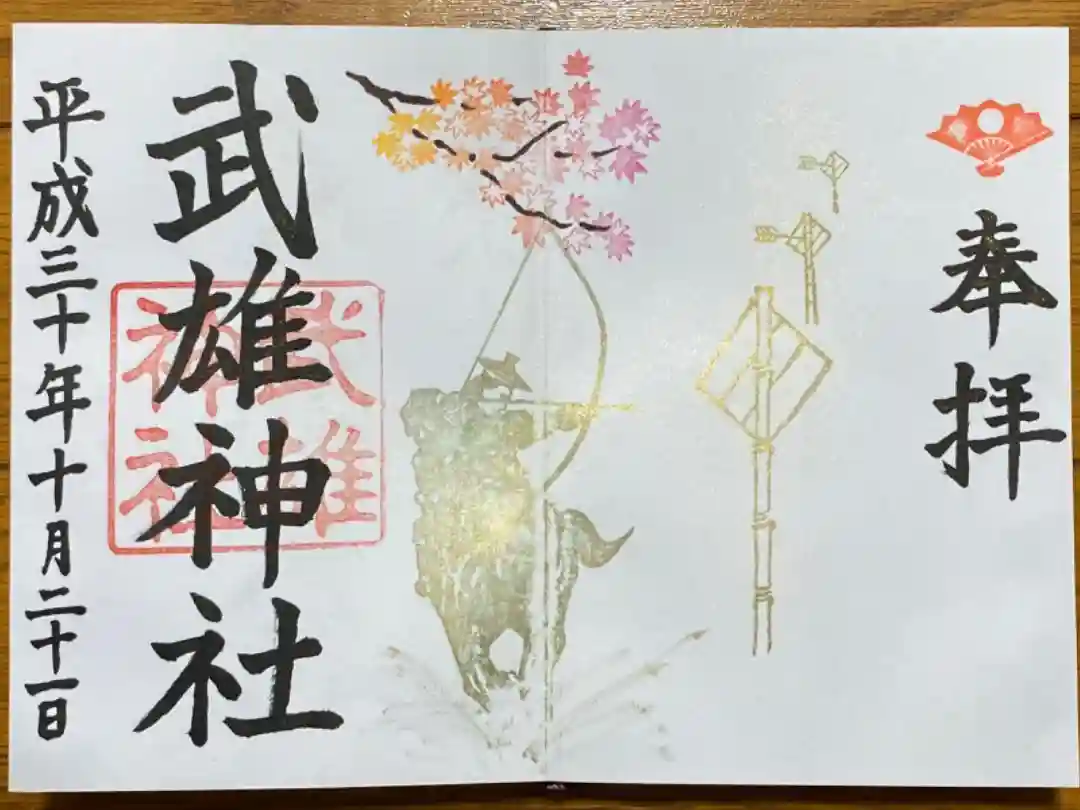 奉拝
武雄神社
武雄神社
平成三十年十月二十一日